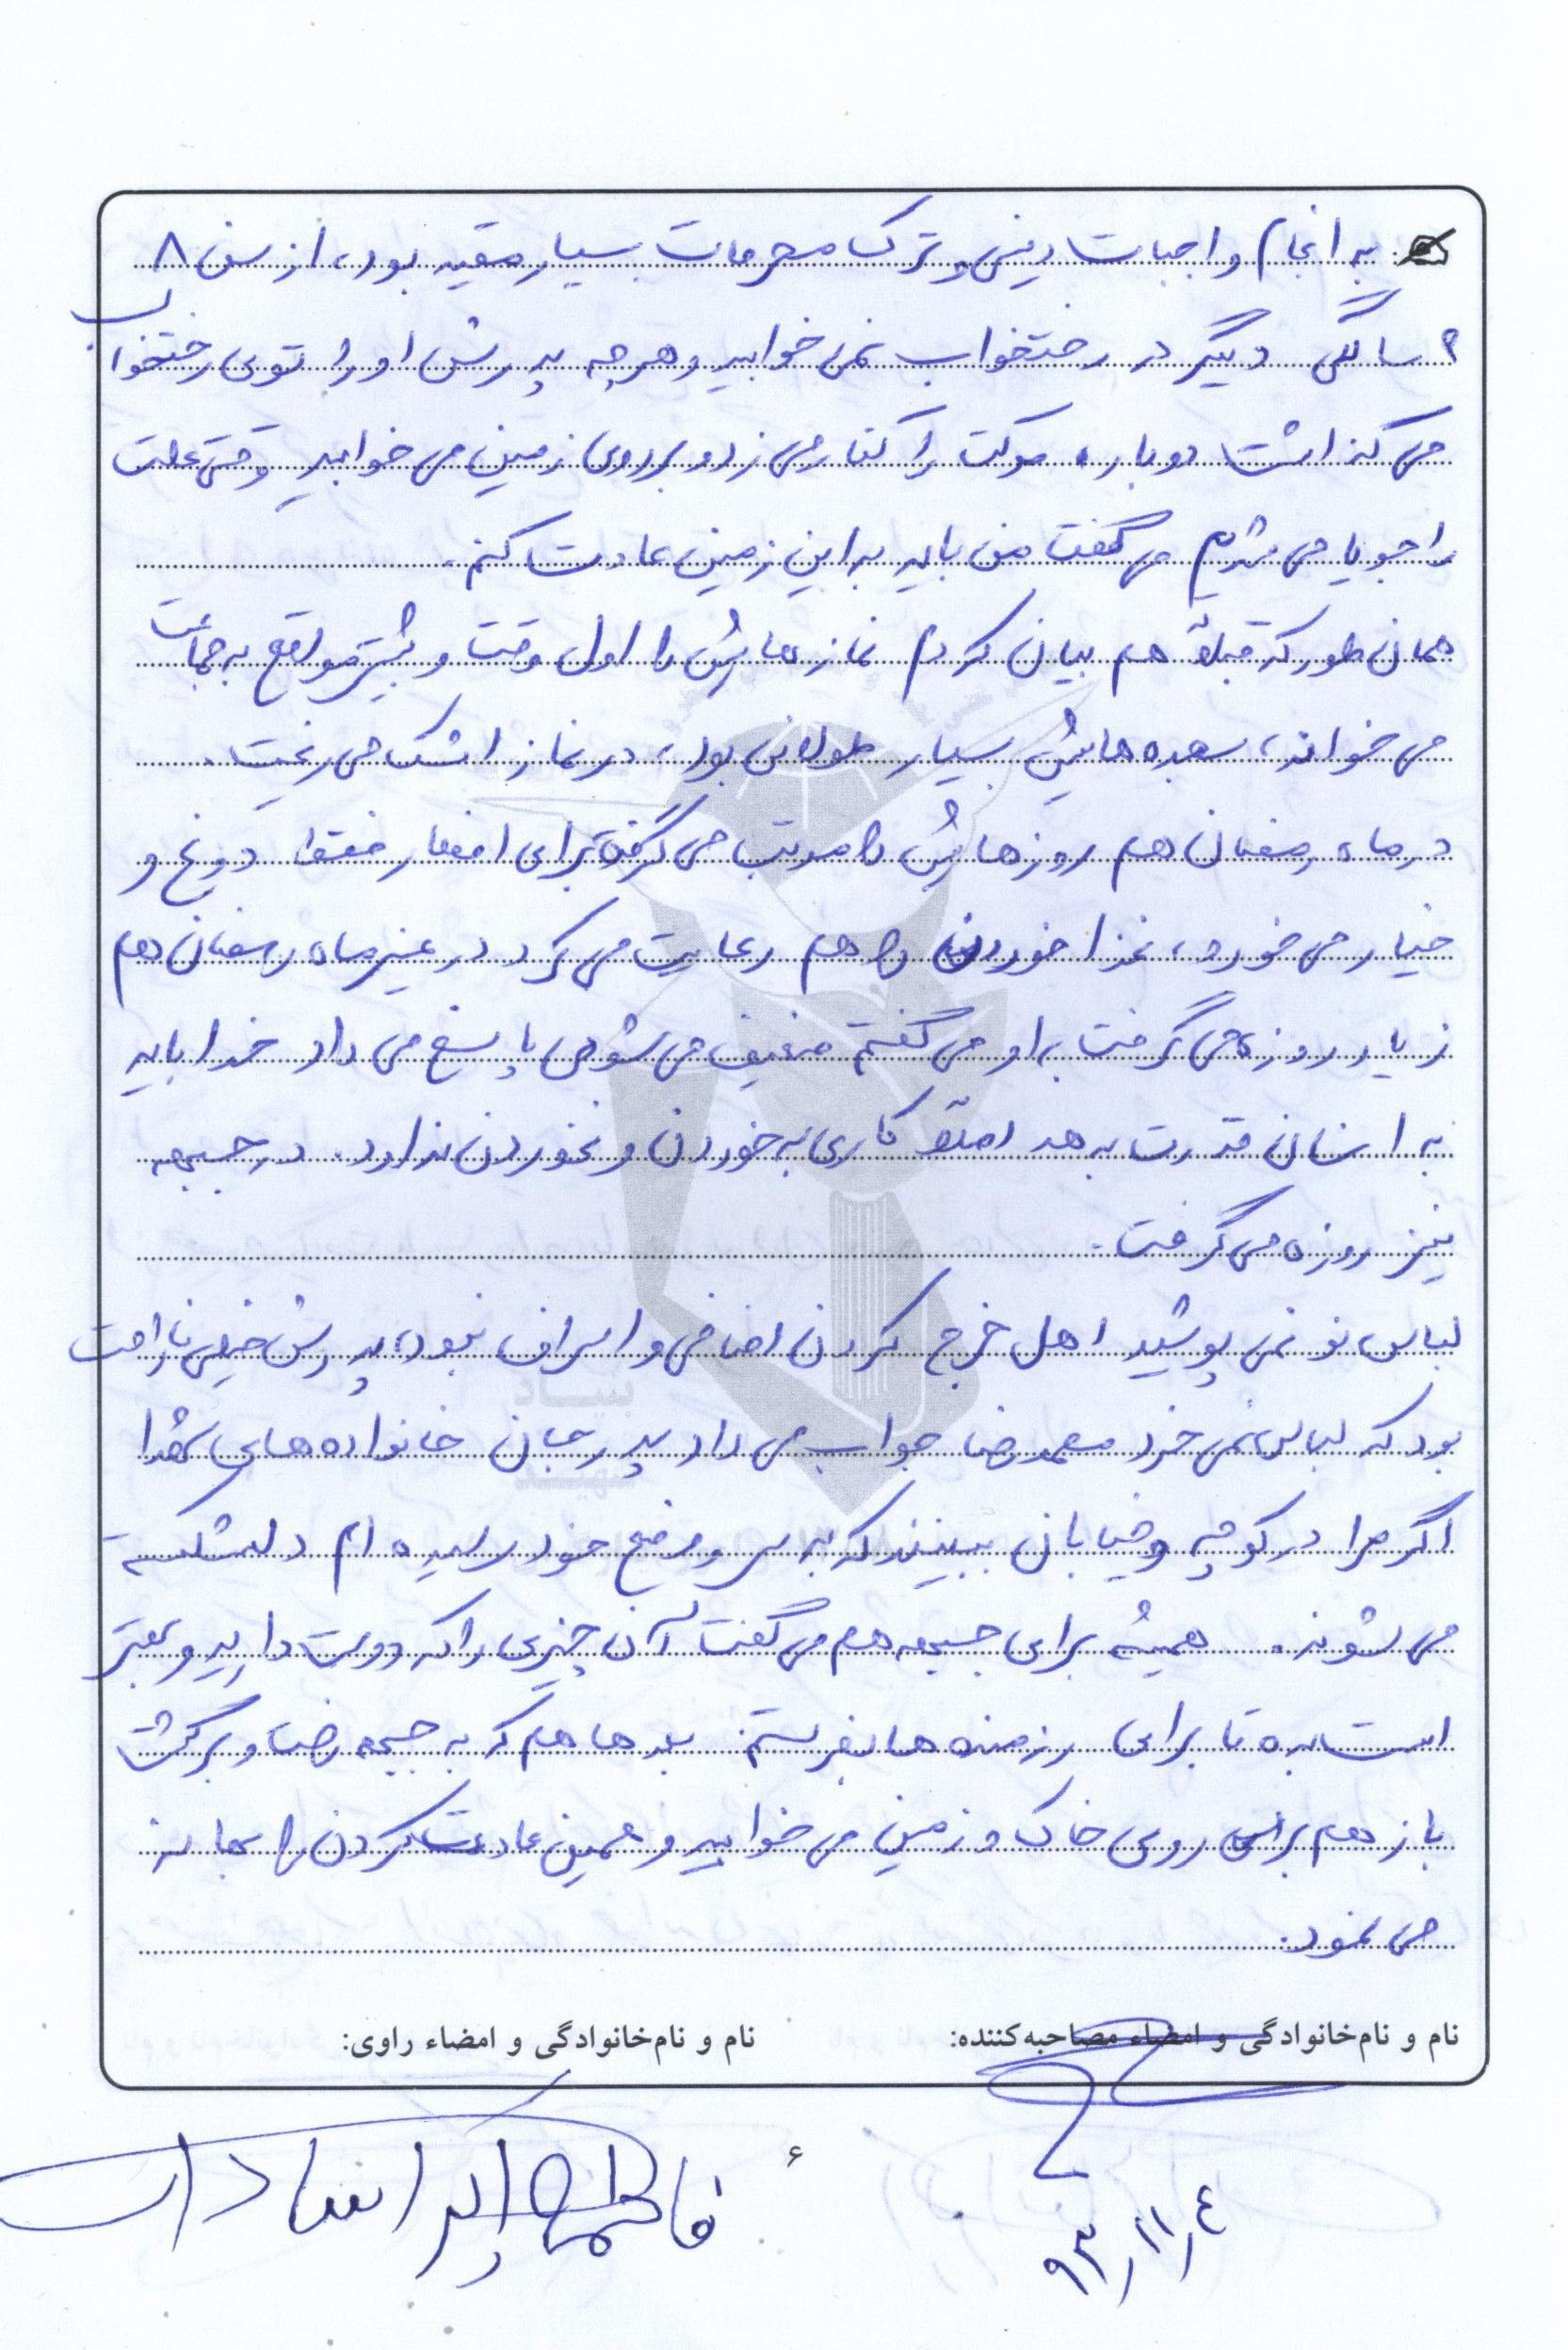 به انجام واجبات دینی و ترک محرمات بسیار مقید بود، از سن ۸
۹ سالگی دیگر در رختخواب نمی خوابید و هر چه پدرش او را توی رختخواب
می گذاشت دوباره موکت را کنار می زد و بر روی زمین می خوابید وقتی علت
را جویا می شدیم می گفت من باید به این زمین عادت کنم.
همان طور که قبلاً هم بیان کردم نمازهایش را اول وقت و بیشتر مواقع به جماعت
می خواند، سجده هایش بسیار طولانی بود، در نماز اشک می ریخت.
در ماه رمضان هم روزهایش را مرتب می گرفت برای افطار فقط دوغ و
خیار می خورد، غذا خوردن را هم رعایت می کرد در غیر ماه رمضان هم
زیاد روزه می گرفت به او می گفتم ضعیف می شوی پاسخ می داد خدا باید
به انسان قدرت بدهد اصلاً کاری به خوردن و نخوردن ندارد. در جبهه
نیز روزه می گرفت.
لباس نو نمی پوشید اهل خرج کردن اضافی و اسراف نبود، پدرش خیلی ناراحت
بود که لباس نمی خرد محمدرضا جواب می داد پدر جان خانواده های شهدا
اگر مرا در کوچه و خیابان ببینند که به سر و وضع خود رسیده ام دلشکسته
می شوند. همیشه برای جبهه هم می گفت آن چیزی را که دوست دارید و بهتر
است بده تا برای رزمنده ها بفرستم. بعدها هم که به جبهه رفت و برگشت
باز هم روی خاک و زمین می خوابید و همین عادت کردن را بهانه
می نمود.
نام و نام‌خانوادگی و امضاء مصاحبه‌کننده:
نام و نام‌خانوادگی و امضاء راوی:
۶
۹۳/۱۱/۴